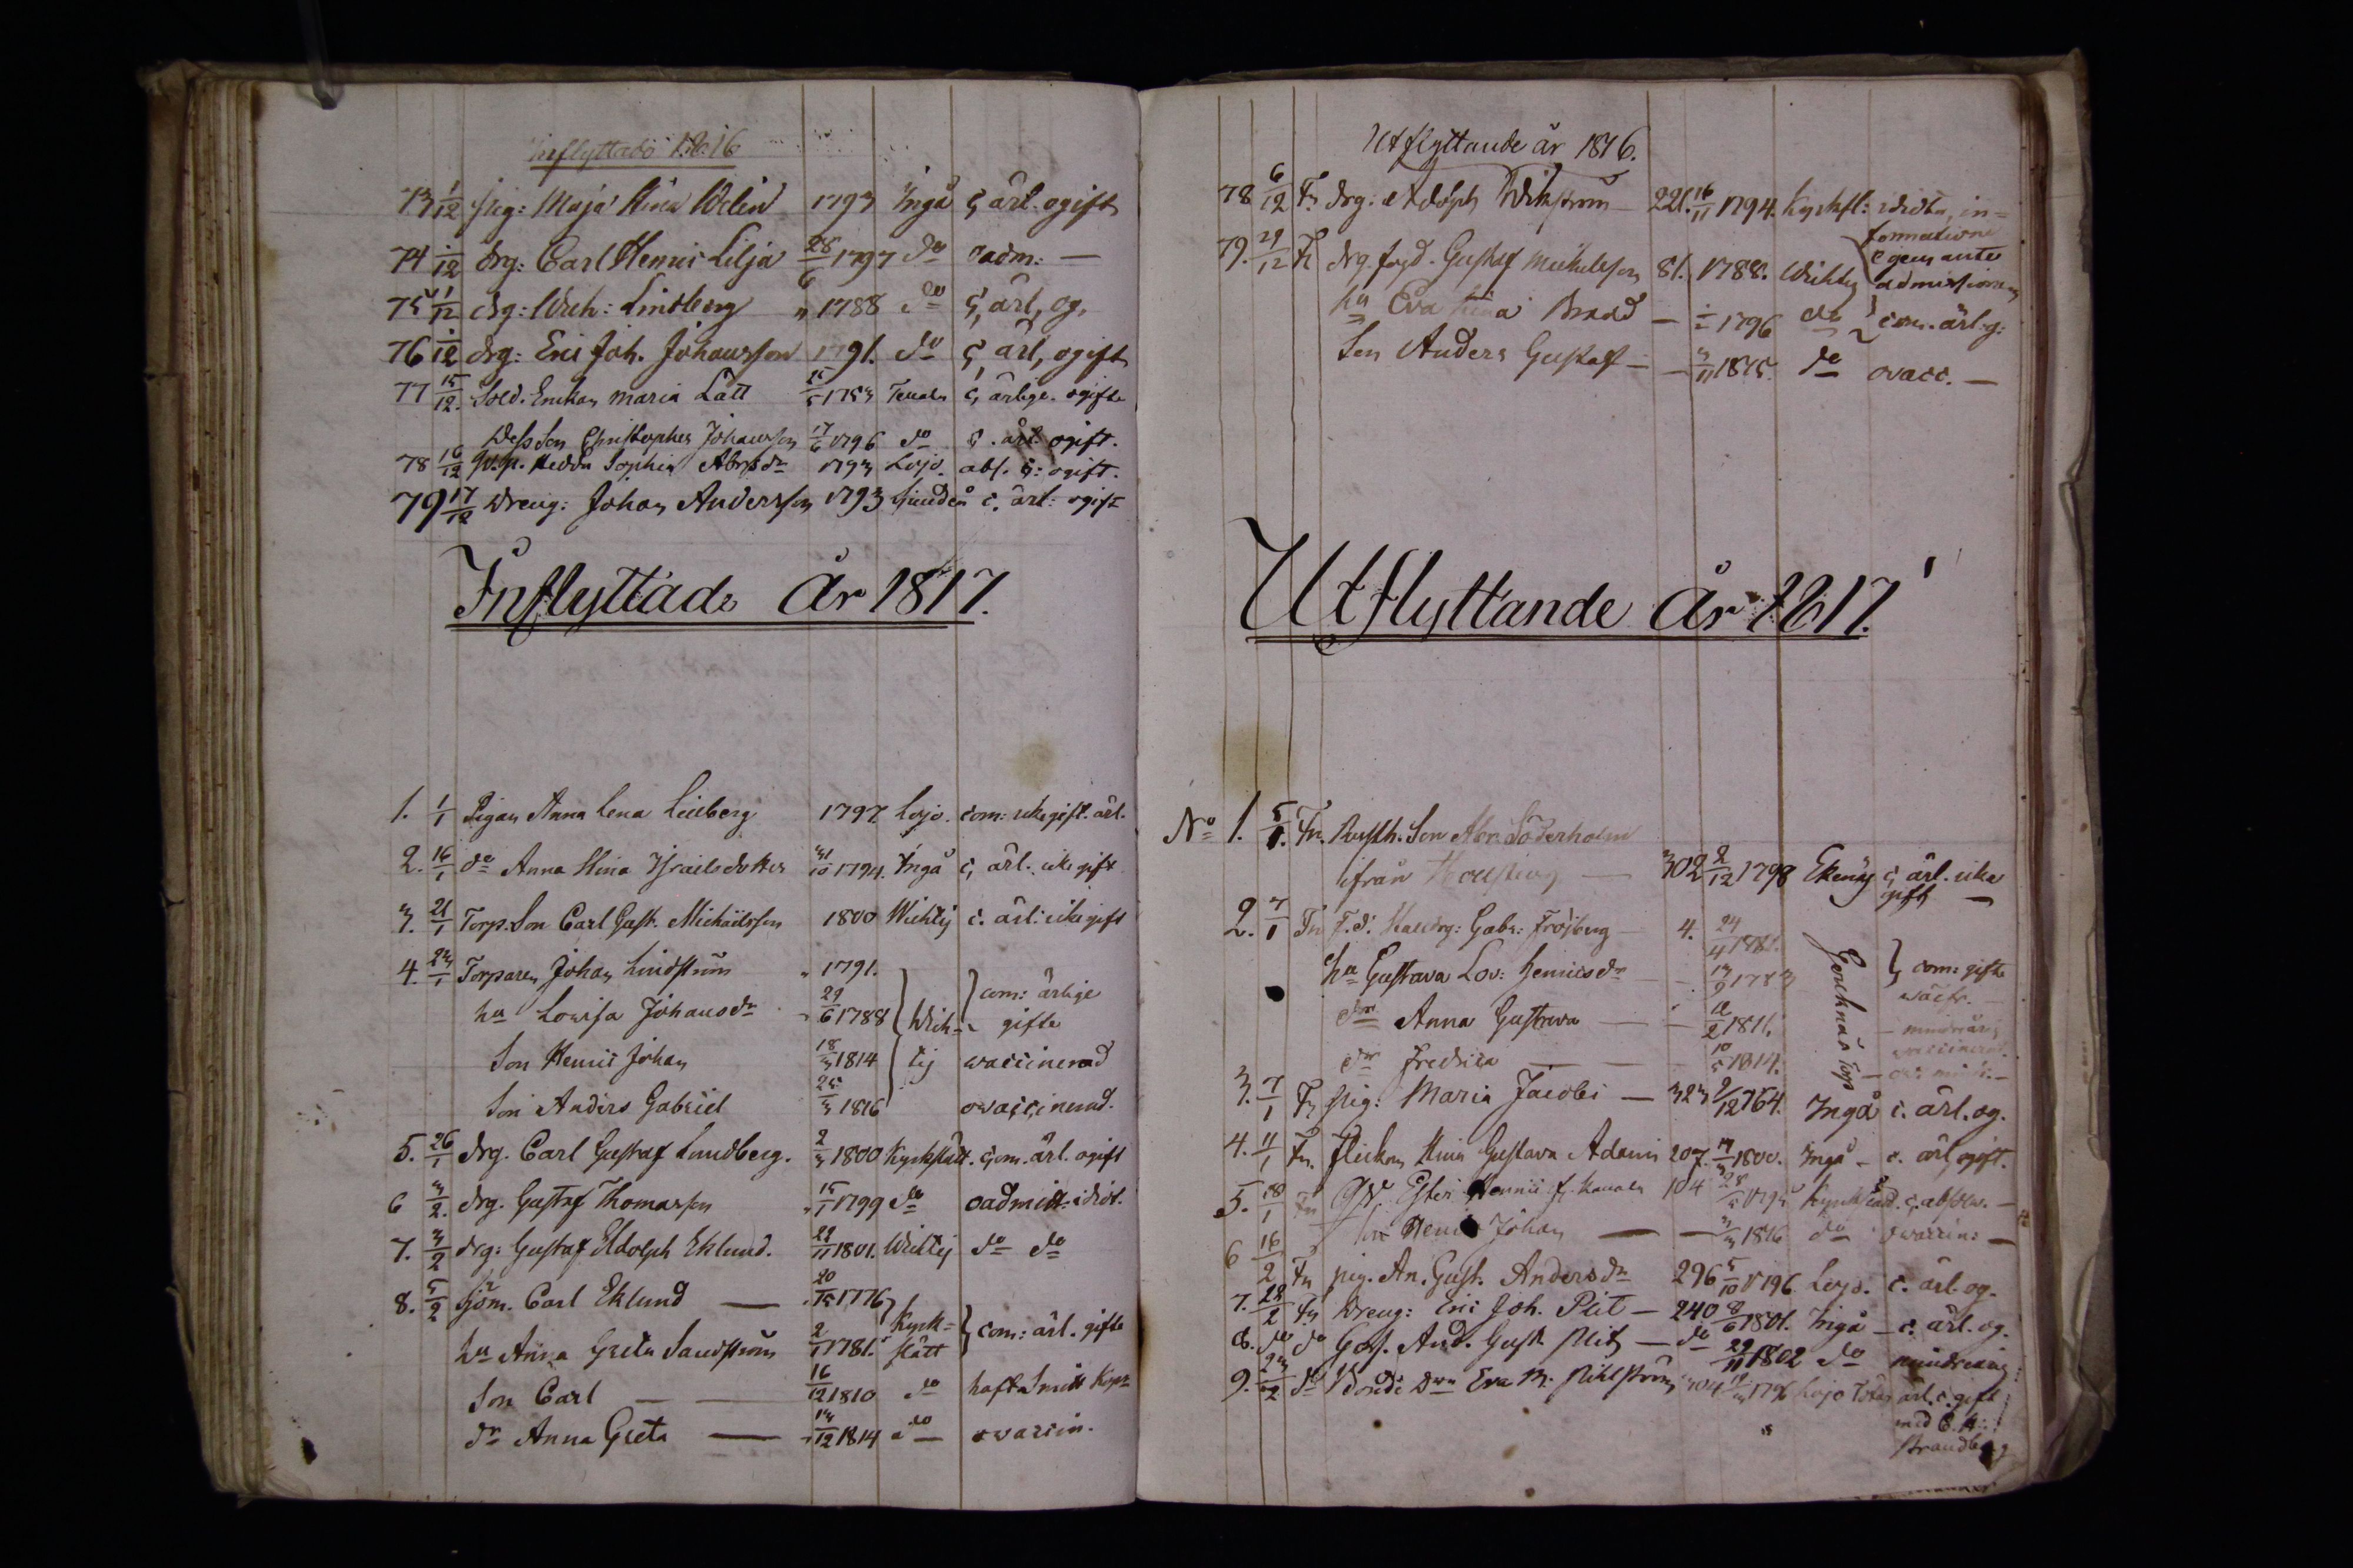 Inflyttade 1816
73 1/12 pig: Maja Stina Welin 1793 Ingå c, ärl. ogift
74 1/12 drg: Carl Henric Lilja 28/6 1797 do oadm: —
75 1/12 drg: Wilh: Lindberg " 1788 do c, ärl, og.
76 1/12 drg: Eric Joh. Johansson 1791. do c, ärl, ogift
77 15/12. Sold. Enkan Maria Lätt 25/5 1753 Tenala c, ärlige. ogifte
Dess Son Christopher Johansson 17/6 1796 do c. ärl. ogift.
78 16/12 Qv.p. Hedda Sophia Abrsdr 1793 Lojo. abs. c: ogift.
79 17/12 Dreng: Johan Andersson 1793 Siundeå c. ärl: ogift
Inflyttade År 1817.
1. 1/1 Pigan Anna Lena Liilberg 1797 Lojo. com: icke gift. ärl.
2. 16/1 do Anna Stina Israelsdotter 31/10 1794. Ingå c, ärl. icke gift
3. 21/1 Torp. Son Carl Gust. Michaelsson 1800 Wichtij c. ärl: icke gift
4. 23/1 Torparen Johan Lindström " 1791.
hu Lovisa Johansdr 29/6 1788 Wich- com: ärlige gifte
Son Henric Johan 18/3 1814 tij vaccinerad
Son Anders Gabriel 25/3 1816 ovaccinerad.
5. 26/1 drg. Carl Gustaf Lundberg. 2/3 1800 Kyrkslätt. com. ärl. ogift
6 3/2. drg. Gustaf Thomasson 15/1 1799 do oadmitt: idiot.
7. 3/2 drg: Gustaf Adolph Eklund. 22/11 1801. Wichtij do do
8. 5/2 Sjöm. Carl Eklund — 20/12 1776 Kyrk-
hu Anna Greta Sandström 2/1 1781. slätt com: ärl. gifte
Son Carl — 16/12 1810 do haft Smitt Kopr
dr Anna Greta — 13/12 1814 do ovaccin.
Utflyttande år 1816.
78 6/12 Fr. drg: Adolph Wikström — 221. 16/11 1794. Kyrksl: idiota, in-
formationis
egens ante
79. 29/12 Fr drg. fogd. Gustaf Michelsson 81. 1788. Wichtij admissionem
hu Eva Stina Brand — 1796 do com. ärl. g:
Son Anders Gustaf — — 3/11 1815. do ovacc. —
Utflyttande År 1817.
No 1. 5/1. Fr. Rusth. Son Abr. Söderholm
ifrån — 302 2/12 1798 Ekenäs c, ärl. icke
gift —
2. 7/1 Fr F.d. Gabr: Fröjberg — 4. 24/4 1781.
hu Gustava Lov: Henricsdr — 13/9 1783 com: gifte
dr Anna Gustava — — 12/2 1811. — minderårig
dr Fredrica — 10/5 1814. vaccinerad.
Torp
3. 7/1 Fr pig: Maria Jacobi — 323 2/12 1764. Ingå c. ärl. og.
4. 11/1 Fr. flickan Stina Gustava Adami 207. 17/3 1800. Ingå — c. ärl, ogift.
5. 18/1 Fr Qv. Ester Henrici f. 104 28/5 1795 Kyrkslätt. c, absolv. —
Son Henric Johan — — 3/3 1816 do ovaccin: —
6 16/2 Fr pig. An. Gust. Andersdr 296 5/10 1796 Lojo. c. ärl. og.
7. 28/2 Fr Dreng: Eric Joh. Plit — 240 8/6 1801. Ingå — c. ärl. og.
8. do do Goss. And. Gust. Plit — do 29/11 1802 do minderårig
9. 23/2 do Eva M. 304 1796 Lojo ärl. c. gift
med C. H.
Strandberg